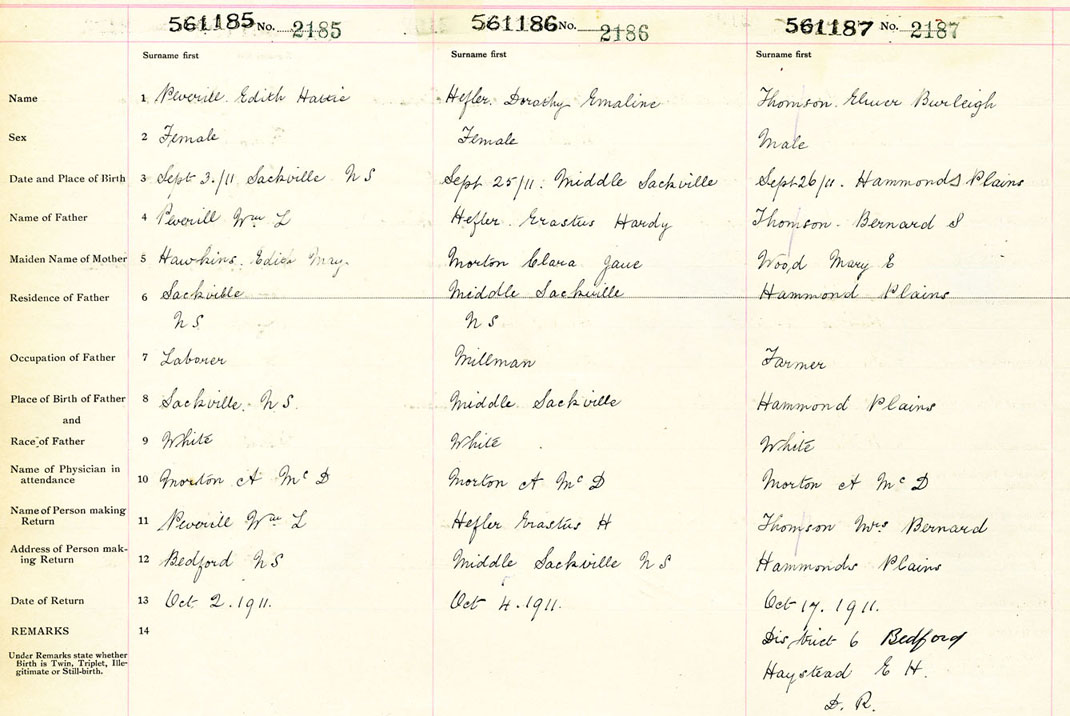 561185 No. 2185 561186 No. 2186 561187 No. 2187
Surname first Surname first Surname first
Name 1 Peverill. Edith Hattie Hefler. Dorothy Emaline Thomson. Elmer Burleigh
Sex 2 Female Female Male
Date and Place of Birth 3 Sept 3./11 Sackville NS Sept 25/11. Middle Sackville Sept 26/11. Hammonds Plains
Name of Father 4 Peverill Wm L Hefler. Erastus Hardy Thomson. Bernard S
Maiden Name of Mother 5 Hawkins. Edith May. Morton Clara Jane Wood Mary E
Residence of Father 6 Sackville Middle Sackville Hammond Plains
NS NS
Occupation of Father 7 Laborer Millman Farmer
Place of Birth of Father 8 Sackville. NS. Middle Sackville Hammond Plains
and
Race of Father 9 White White White
Name of Physician in
attendance 10 Morton A McD Morton A McD Morton A McD
Name of Person making
Return 11 Peverill Wm L Hefler Erastus H Thomson Mrs Bernard
Address of Person mak-
ing Return 12 Bedford NS Middle Sackville NS Hammonds Plains
Date of Return 13 Oct 2. 1911. Oct 4. 1911. Oct 17. 1911.
REMARKS 14 District 6 Bedford
Under Remarks state whether
Birth is Twin, Triplet, Ille-
gitimate or Still-birth.
Haystead E H.
D. R.